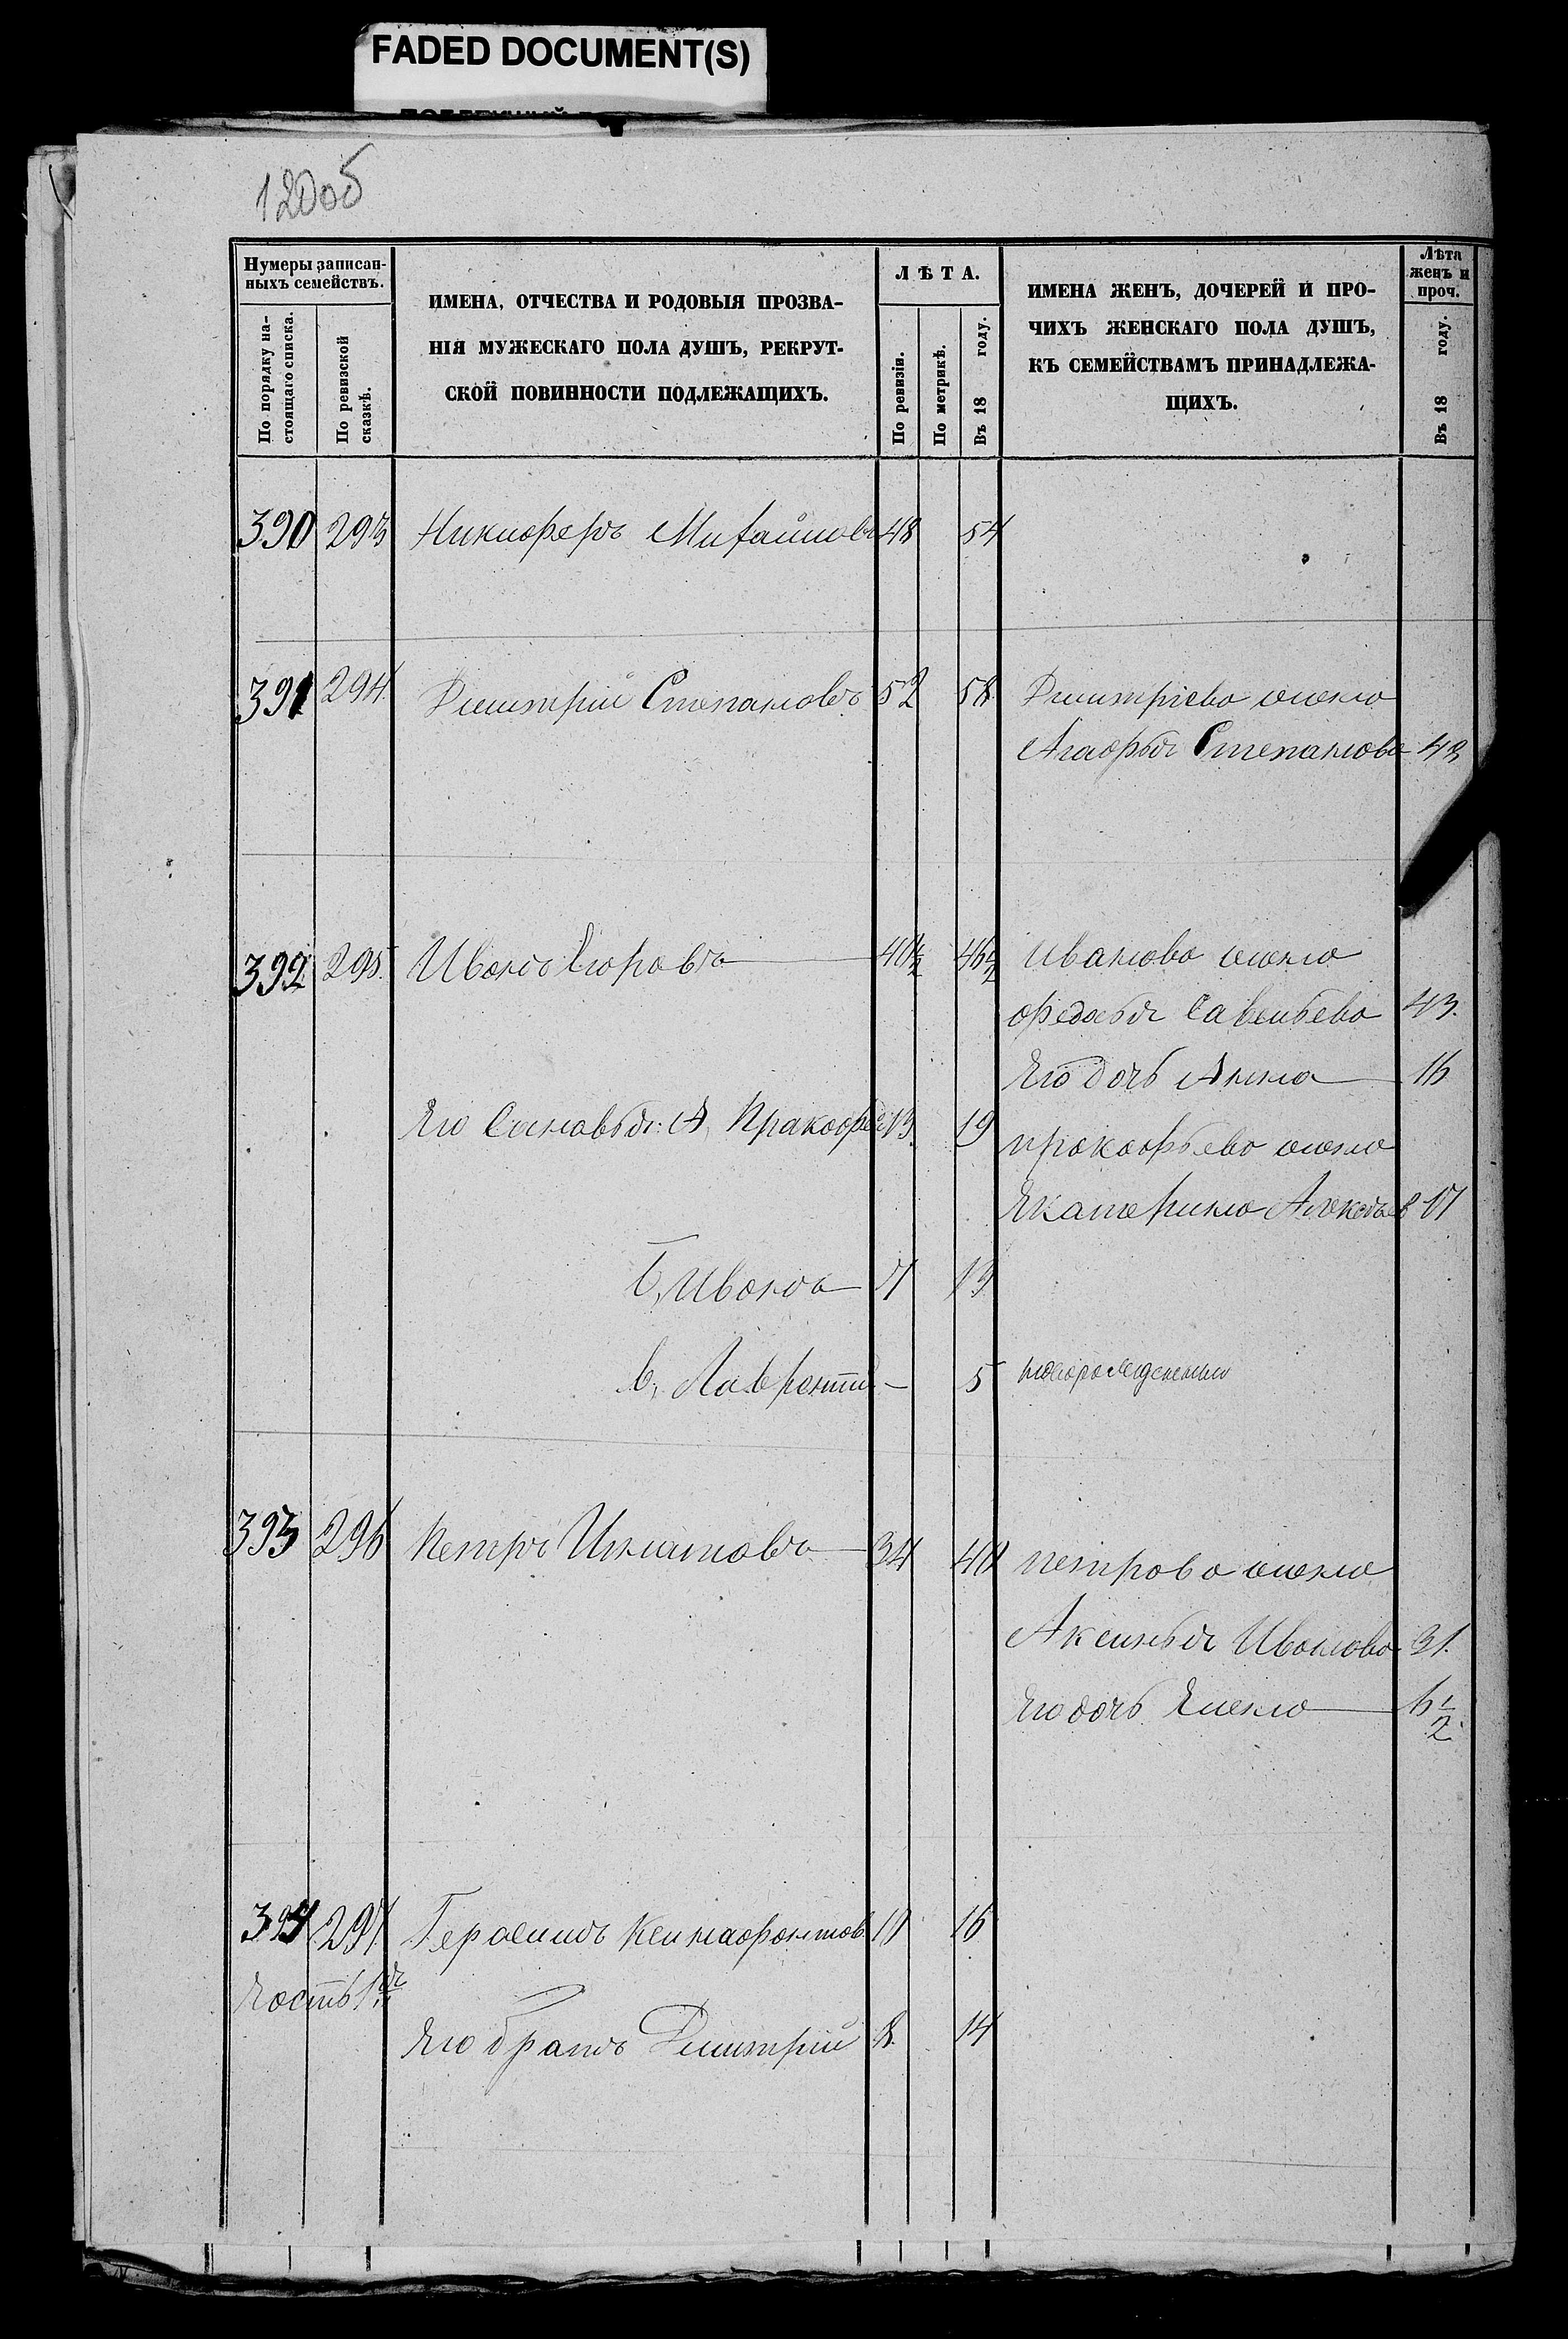 FADED DOCUMENT(S)
120об
Нумеры записан-
ныхъ семействъ.
По порядку на-
стоящаго списка.
По ревизской
сказкѣ.
ИМЕНА, ОТЧЕСТВА И РОДОВЫЯ ПРОЗВА-
НІЯ МУЖЕСКАГО ПОЛА ДУШЪ, РЕКРУТ-
СКОЙ ПОВИННОСТИ ПОДЛЕЖАЩИХЪ.
ЛѢТА.
По ревизіи.
По метрикѣ.
Въ 18 году.
ИМЕНА ЖЕНЪ, ДОЧЕРЕЙ И ПРО-
ЧИХЪ ЖЕНСКАГО ПОЛА ДУШЪ,
КЪ СЕМЕЙСТВАМЪ ПРИНАДЛЕЖА-
ЩИХЪ.
Лѣта
женъ и
проч.
Въ 18 году.
390 293 Никиферъ Михайловъ 48 54
391 294. Дмитрій Степановъ 52 58 Дмитріева жена
Агафья Степанова 43
392 295. Иванъ Егоровъ 40½ 46½ Иванова жена
Федосья Савельева 43.
Его дочь Анна 16
Его Сыновья: А, Пракофей 13. 19 прокофьева жена
Екатерина 17
Б, Иванъ 7 13
В, Лаврентій - 5 новорожденный
393 296 Петръ Игнатовъ 34 40 петрова жена
Аксинья Иванова 31.
Его дочь Елена 6½
394 297 Герасимъ Ксинафонтов. 10 16
Часть 1я
Его братъ Дмитрій 8. 14